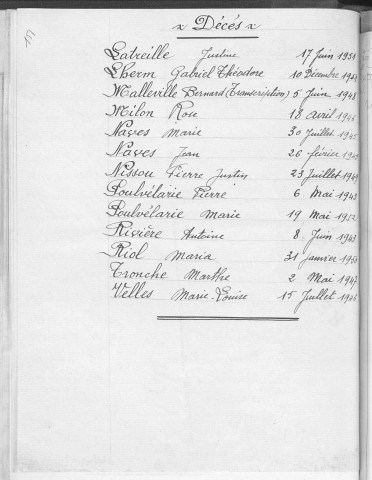 x Décés x
Latreille Justine 17 Juin 1951
Lherm Gabriel Théodore 10 Décembre
Malleville Bernard (Transcription) 5 Juin 1948
Milon Rose 18 avril
Nayes Marie 30 Juillet
Nayes Jean 26 février
Nissou Pierre Justin 23 Juillet
Poulvélarie Pierre 6 Mai
Poulvélarie Marie 19 Mai 1952
Rivière Antoine 8 Juin
Riol Maria 31 janvier
Tronche Marthe 2 Mai 1947
Velles Marie-Louise 15 Juillet